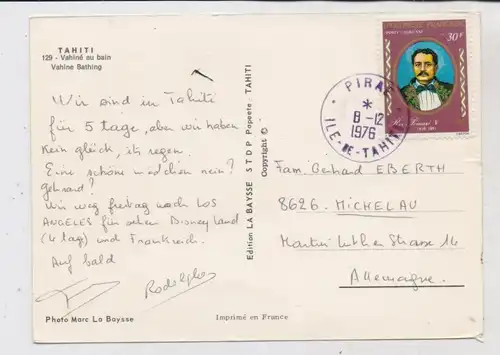 TAHITI
129 - Vahiné au bain
Vahine Bathing
Wir sind in Tahiti
für 5 tage, aber wir haben
kein glück, it's regen.
Eine schöne mädchen nein?
Gerhard?
Wir weg freitag nach LOS
ANGELES für sehen Disneyland
(4 tag) und Frankreich.
Auf bald
Rodolphe
Photo Marc La Baysse
Imprimé en France
Edition LA BAYSSE S T D P Papeete - TAHITI
Copyright ©
POLYNESIE FRANCAISE
30F
PIRAE
*
8-12
1976
ILE-DE-TAHITI
Fam. Gerhard EBERTH
8626. MICHELAU
Martin Luther Strasse 14
Allemagne.